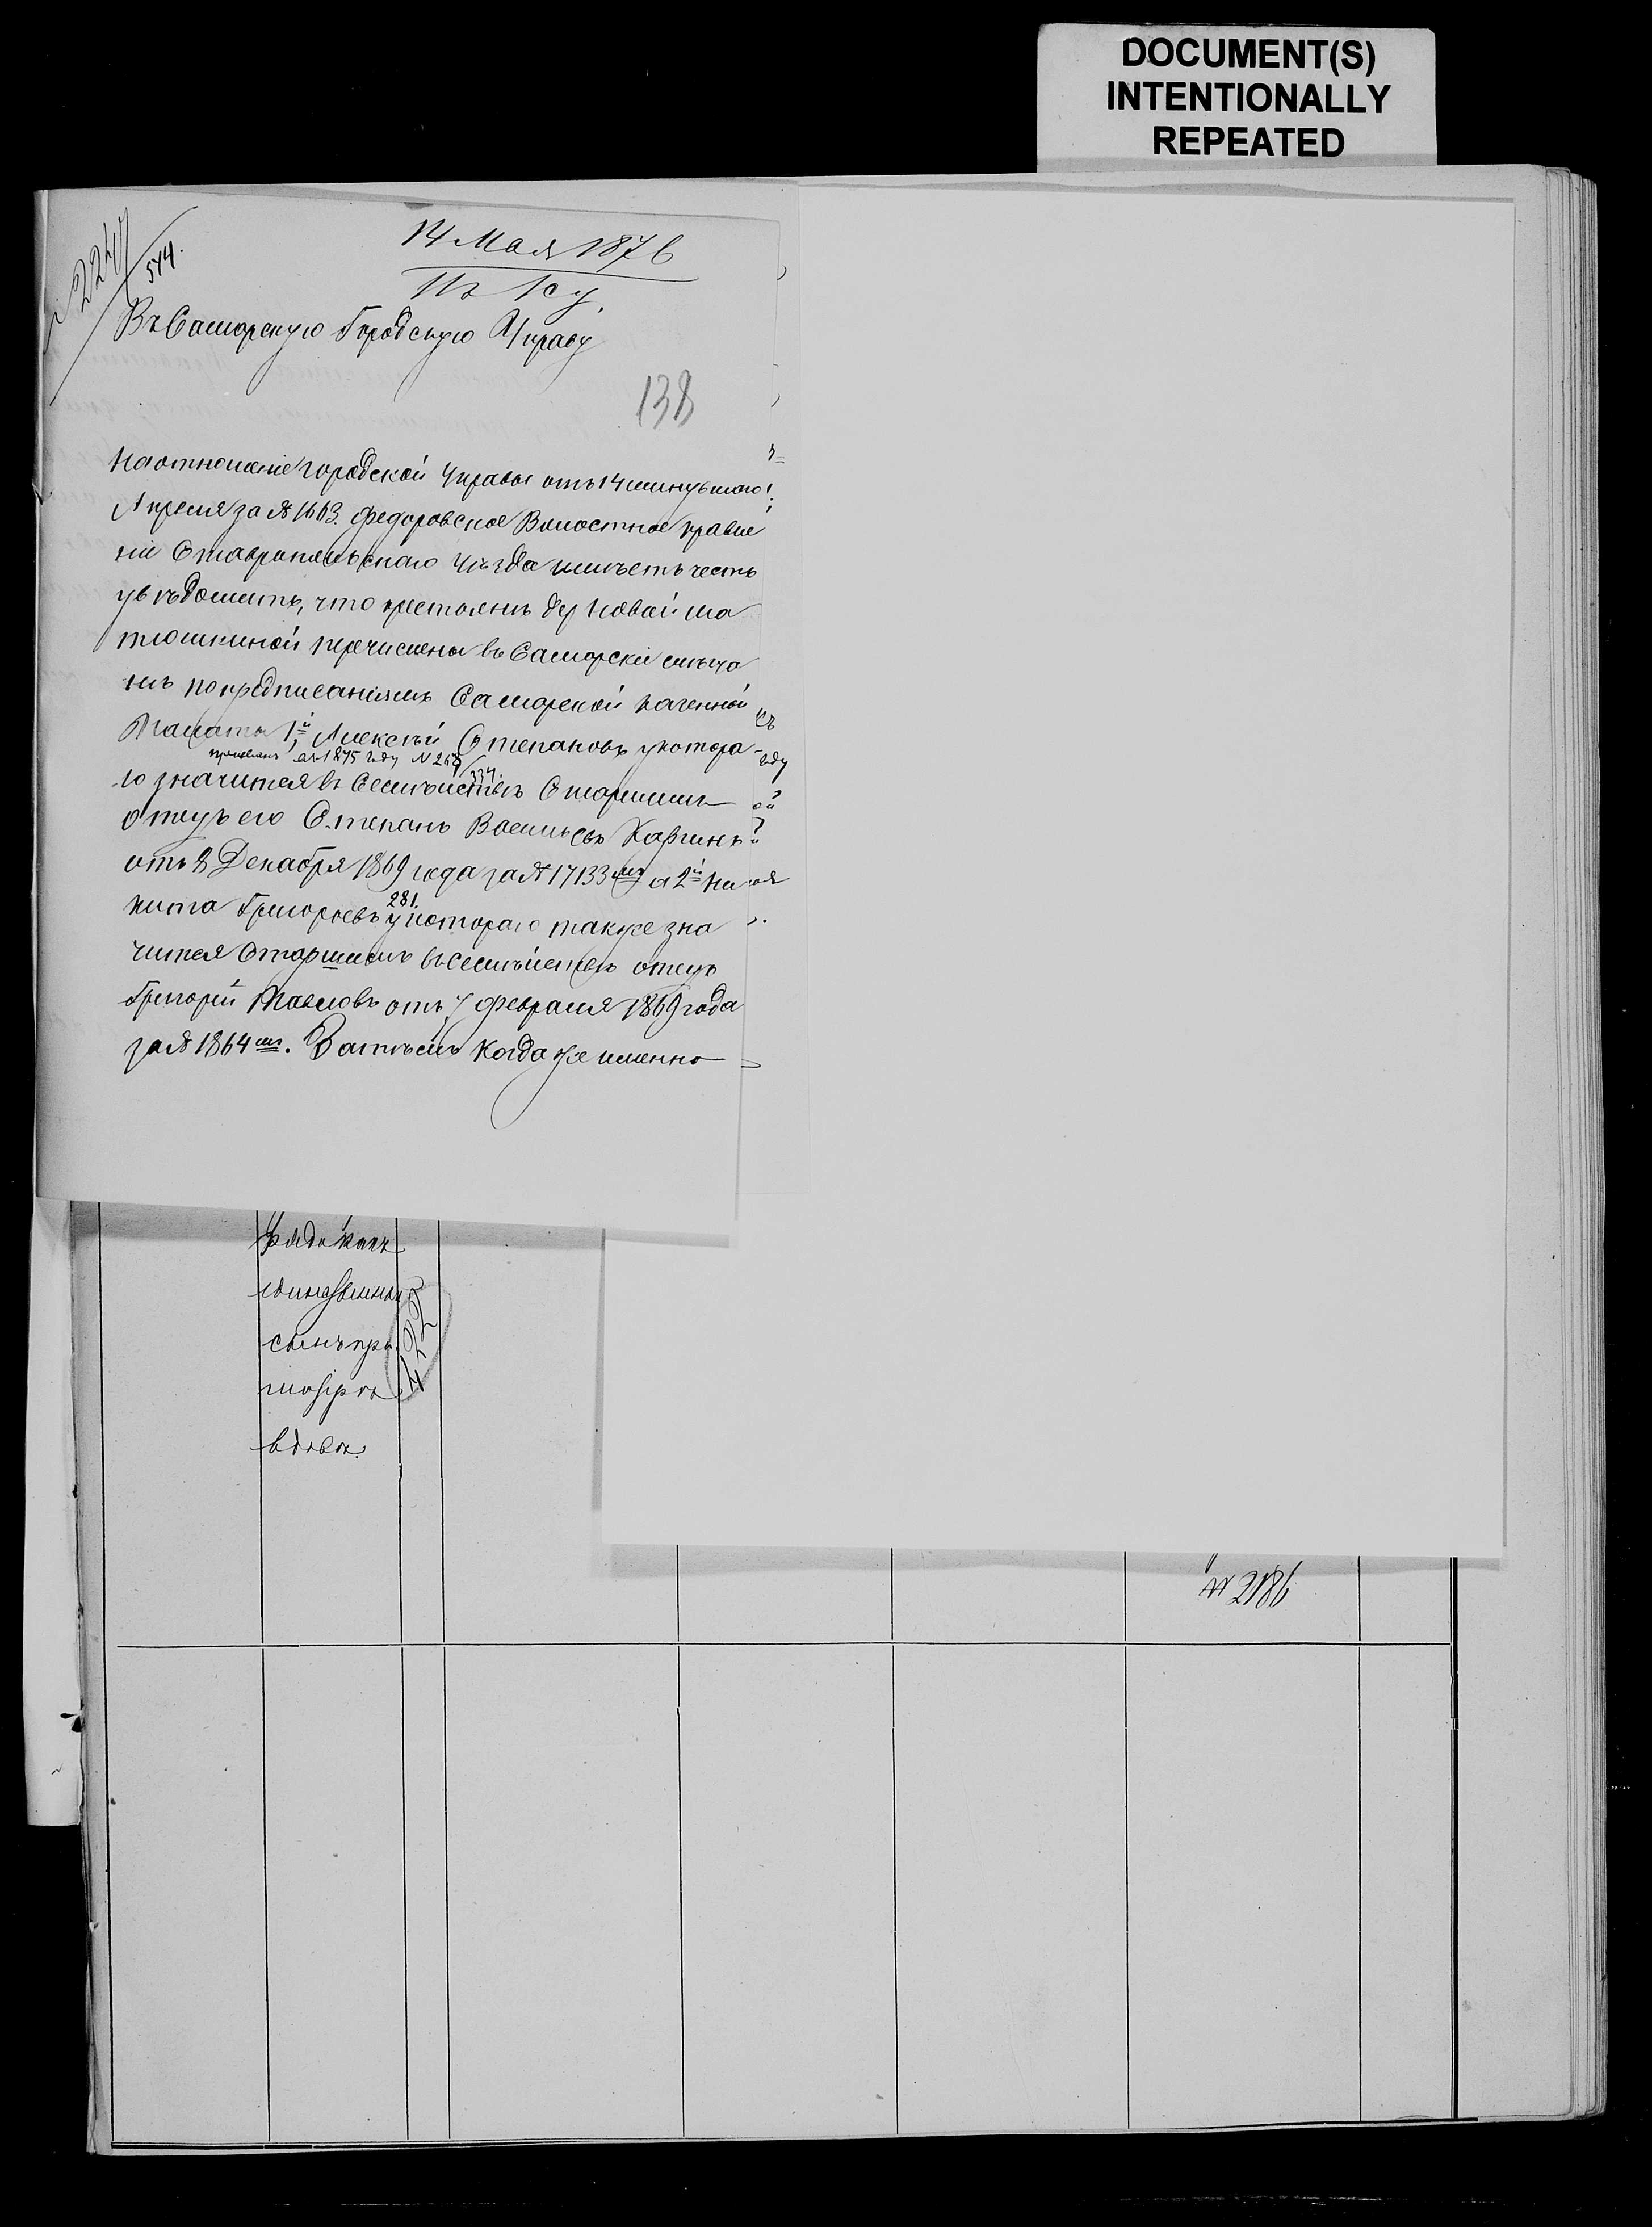 DOCUMENT(S)
INTENTIONALLY
REPEATED
14 Мая 1876
2247/
544.
Въ Самарскую Городскую Управу
138
На отношеніе Городской Управы отъ 14 минувшаго
Апреля за № 1663. Федоровское Волостное правле
ніе Ставропольскаго Уѣзда имѣетъ честь
увѣдомить, что крестьянъ дер Новой Ма
тюшкиной перечислены въ Самарскіе мѣща
нѣ по предписаніямъ Самарской казенной
Палаты 1й Алексѣй Степановъ у котора-
причисленъ въ 1875 году № 268/334.
го значится въ Семѣйствѣ Старшимъ
отецъ его Степанъ Васильевъ Каргинъ
отъ 8 Декабря 1869 года за № 17133мъ а 2й Ни
кита Григорьевъ у котораго также зна
281.
чится Старшимъ въ семѣйствѣ отецъ
Григорій Павловъ отъ 7 Февраля 1869 года
за № 1864мъ. Затѣмъ когда же именно
сынъ при
вдова.
№ 2186